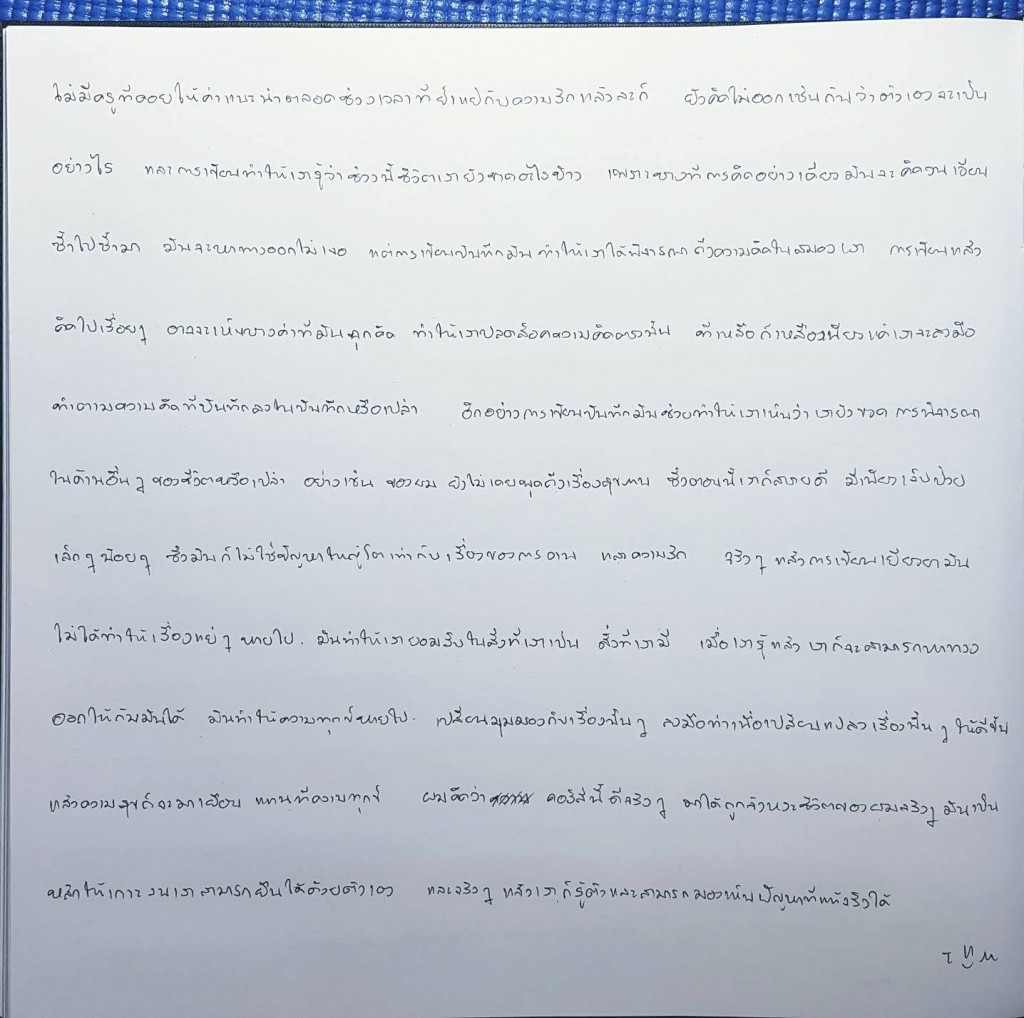 ไม่มีครูที่คอยให้คำแนะนำตลอดช่วงเวลาที่ย่ำแย่กับความรักแล้วละก็ ยังคิดไม่ออกเช่นกันว่าตัวเองจะเป็น
อย่างไร และการเขียนทำให้เรารู้ว่าช่วงนี้ชีวิตเรายังขาดอะไรบ้าง เพราะบางทีการคิดอย่างเดียวมันจะคิดวนเวียน
ซ้ำไปซ้ำมา มันจะหาทางออกไม่เจอ แต่การเขียนบันทึกมันทำให้เราได้พิจารณาถึงความคิดในสมองเรา การเขียนแล้ว
คิดไปเรื่อยๆ อาจจะเห็นบางคำที่มันฉุกคิด ทำให้เราปลดล็อคความคิดตรงนั้น ที่เหลือก็เหลือเพียงแค่เราจะลงมือ
ทำตามความคิดที่บันทึกลงในบันทึกหรือเปล่า อีกอย่างการเขียนบันทึกมันช่วยทำให้เราเห็นว่าเรายังขาดการพิจารณา
ในด้านอื่นๆ ของชีวิตหรือเปล่า อย่างเช่น ของผม ยังไม่เคยพูดถึงเรื่องสุขภาพ ซึ่งตอนนี้เราก็สบายดี มีเพียงเจ็บป่วย
เล็กๆ น้อยๆ ซึ่งมันก็ไม่ใช่ปัญหาใหญ่โตเท่ากับเรื่องของการงาน และความรัก จริงๆ แล้วการเขียนเยียวยามัน
ไม่ได้ทำให้เรื่องแย่ๆ หายไป. มันทำให้เรายอมรับในสิ่งที่เราเป็น สิ่งที่เรามี เมื่อเรารู้แล้ว เราก็จะสามารถหาทาง
ออกให้กับมันได้ มันทำให้ความทุกข์หายไป. เปลี่ยนมุมมองกับเรื่องนั้นๆ ลงมือทำเพื่อเปลี่ยนแปลงเรื่องนั้นๆ ให้ดีขึ้น
แล้วความสุขก็จะมาเยือน แทนที่ความทุกข์ ผมคิดว่า คอร์สนี้ดีจริงๆ มาได้ถูกจังหวะชีวิตของผมจริงๆ มันเป็น
หลักให้เกาะจนเราสามารถยืนได้ด้วยตัวเอง และจริงๆ แล้วเราก็รู้ตัวและสามารถมองเห็นปัญหาที่แท้จริงได้